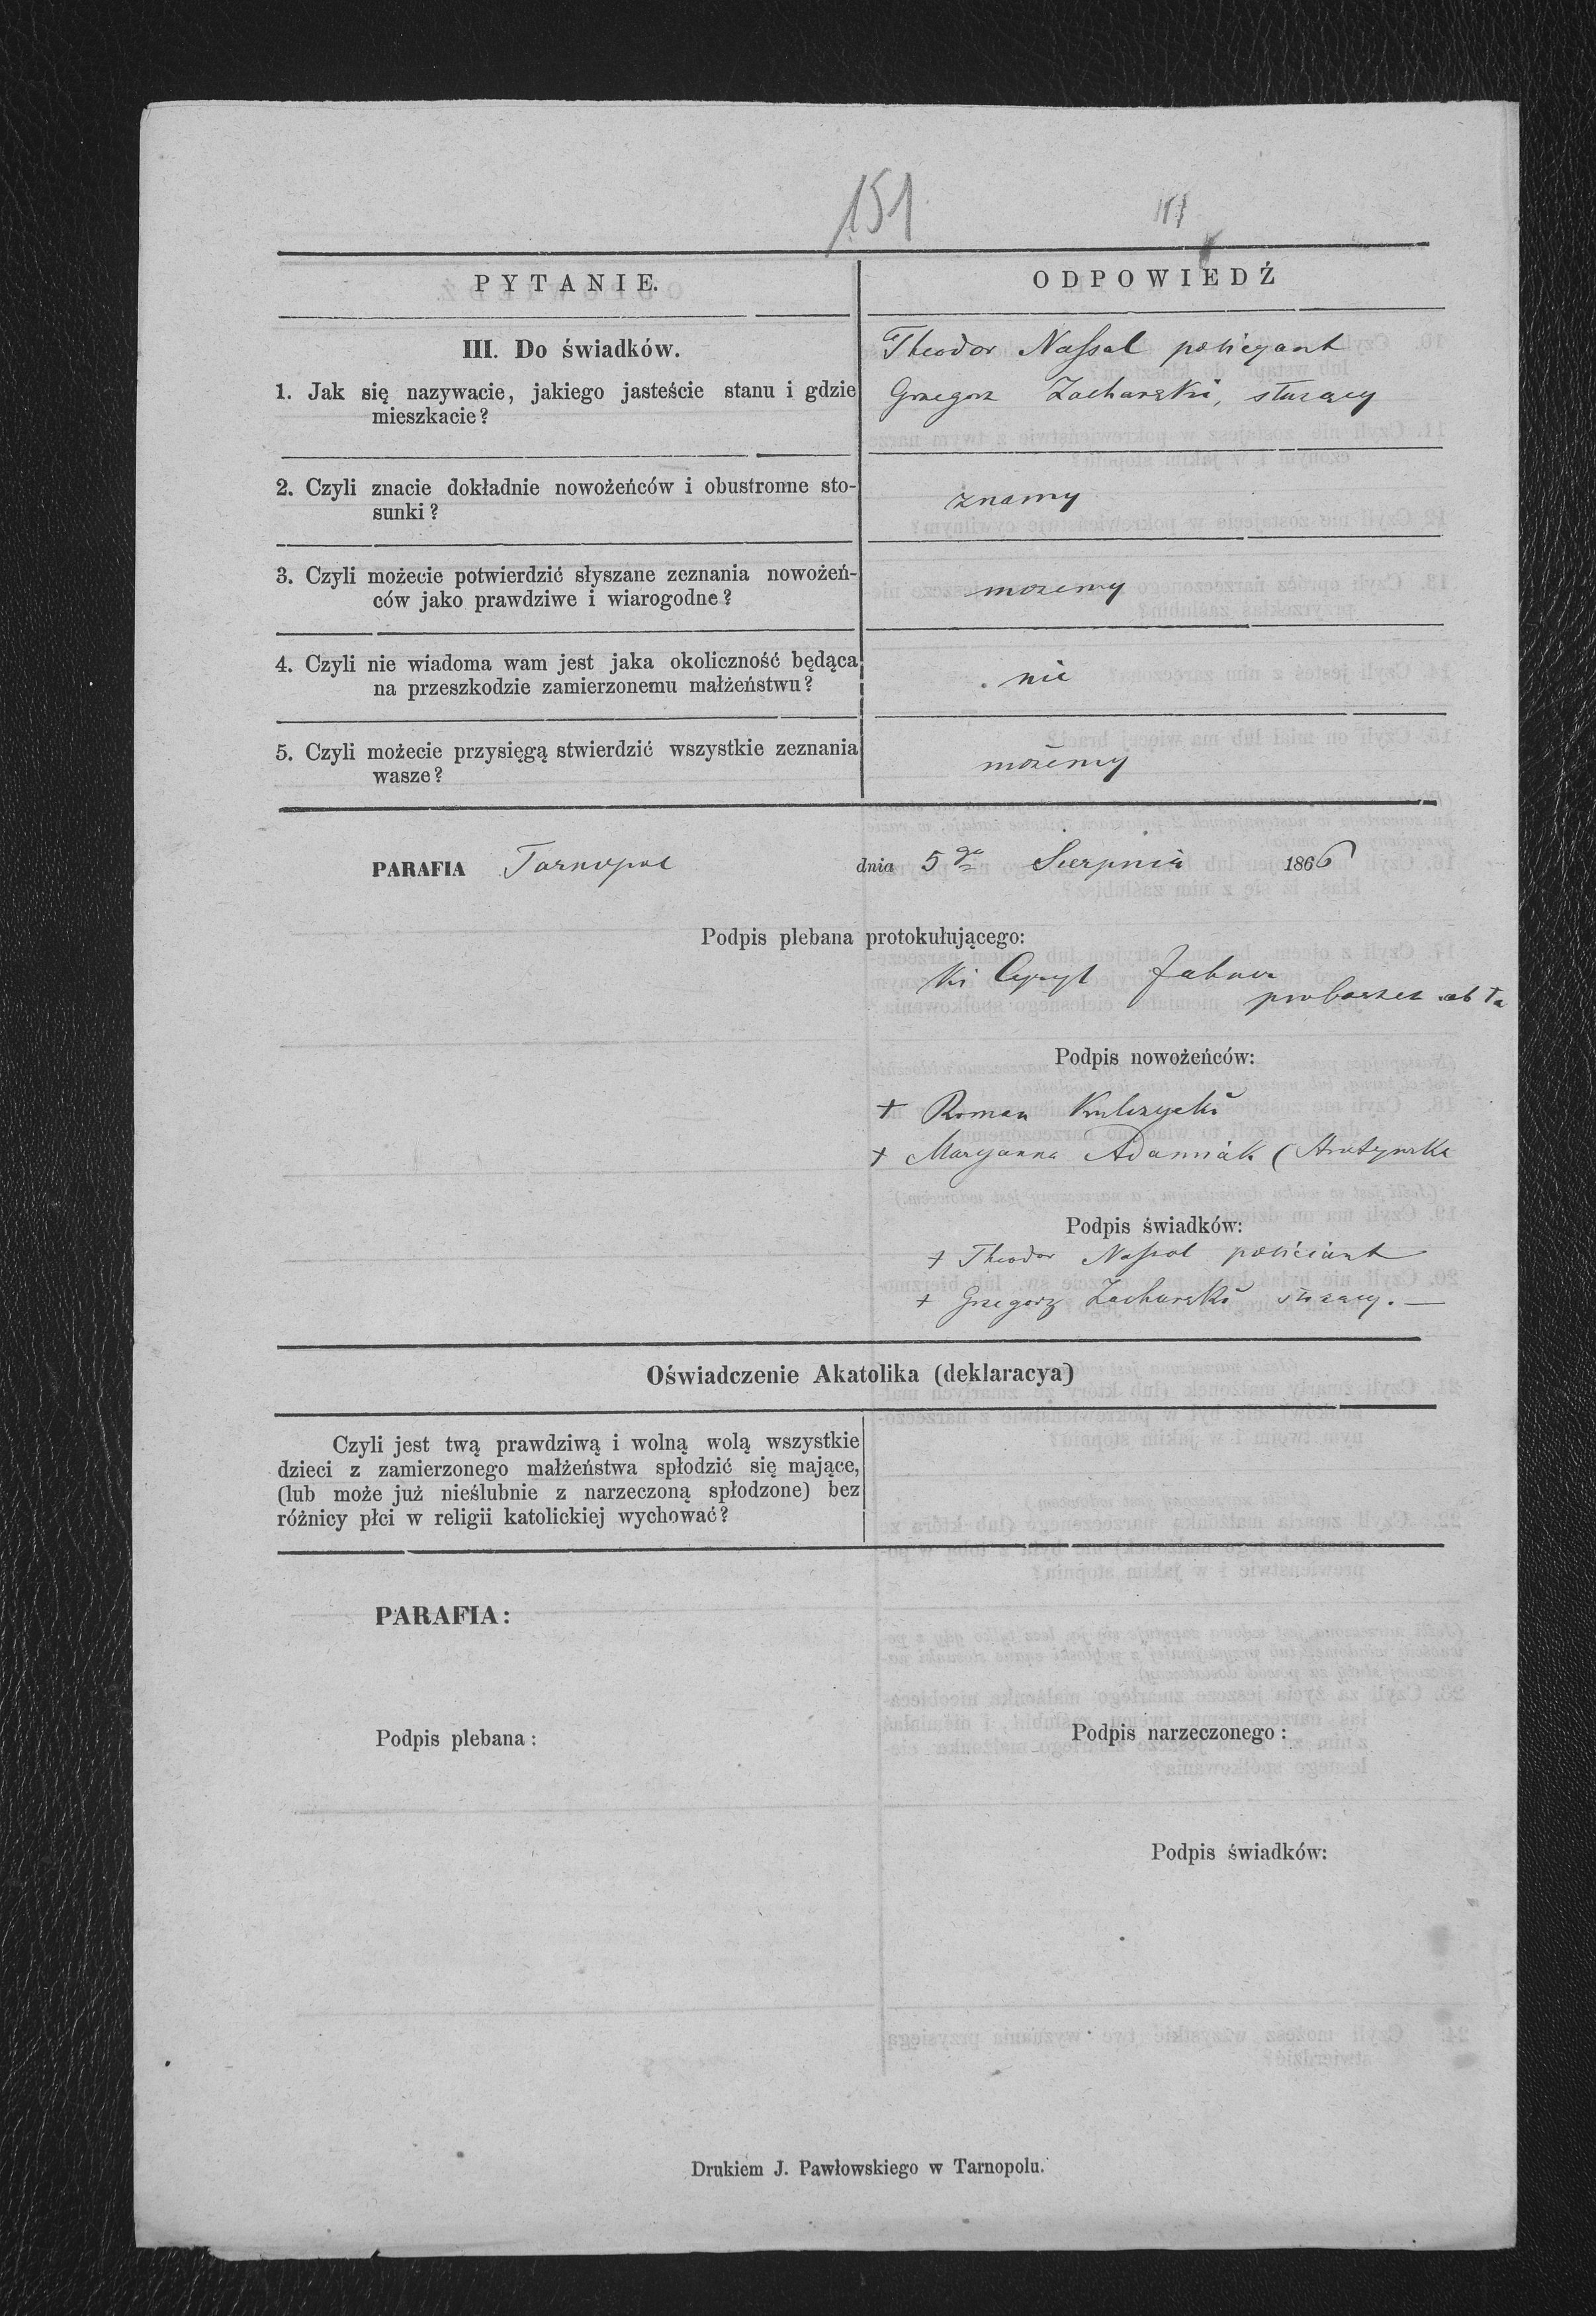 151
PYTANIE.
ODPOWIEDŹ
III. Do świadków.
Theodor Nassal policyant
1. Jak się nazywacie, jakiego jasteście stanu i gdzie
mieszkacie?
Grzegorz Zacharski, służący
2. Czyli znacie dokładnie nowożeńców i obustronne sto-
sunki?
znamy
3. Czyli możecie potwierdzić słyszane zeznania nowożeń-
ców jako prawdziwe i wiarogodne?
możemy
4. Czyli nie wiadoma wam jest jaka okoliczność będąca
na przeszkodzie zamierzonemu małżeństwu?
nie
5. Czyli możecie przysięgą stwierdzić wszystkie zeznania
wasze?
możemy
PARAFIA Tarnopol dnia 5go Sierpnia 1866
Podpis plebana protokułującego:
Podpis nowożeńców:
+ Roman Kulczycki
+ Maryanna Adamiak
Podpis świadków:
+ Theodor Nassal policiant
+ Grzegorz Zacharski służący. —
Oświadczenie Akatolika (deklaracya)
Czyli jest twą prawdziwą i wolną wolą wszystkie
dzieci z zamierzonego małżeństwa spłodzić się mające,
(lub może już nieślubnie z narzeczoną spłodzone) bez
różnicy płci w religii katolickiej wychować?
PARAFIA:
Podpis plebana:
Podpis narzeczonego:
Podpis świadków:
Drukiem J. Pawłowskiego w Tarnopolu.